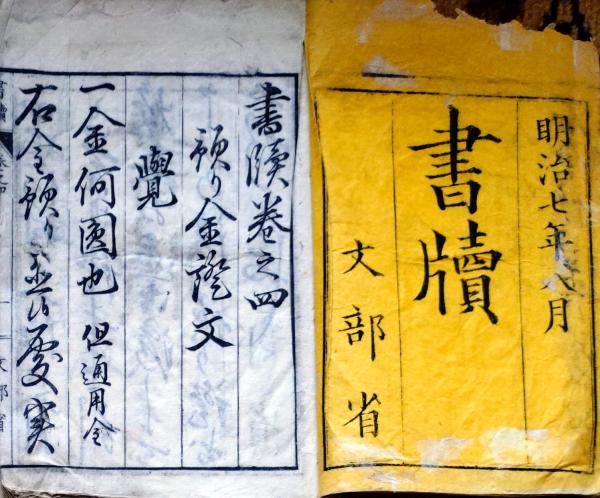 明治七年八月
書牘
文部省
書牘巻之四
預り金證文
覺
一金何圓也 但通用金
右金預り置候處実
書牘 巻之四 一 文部省